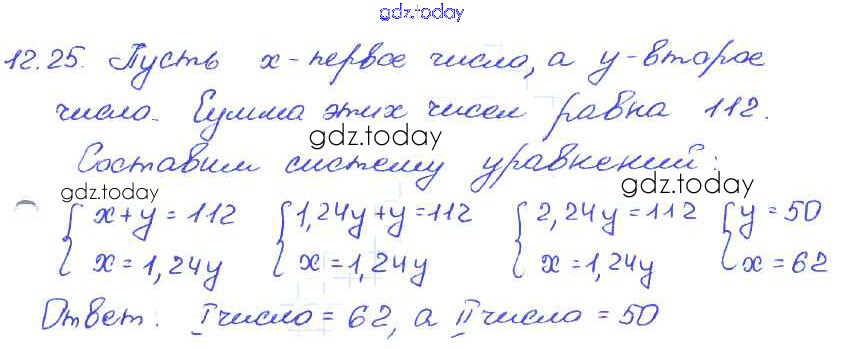 gdz.today
12.25. Пусть x - первое число, а y - второе
число. Сумма этих чисел равна 112.
gdz.today
Составим систему уравнений:
gdz.today gdz.today
{ x+y=112 { 1,24y+y=112 { 2,24y=112 { y=50
x=1,24y x=1,24y x=1,24y x=62
Ответ: I число = 62, а II число = 50